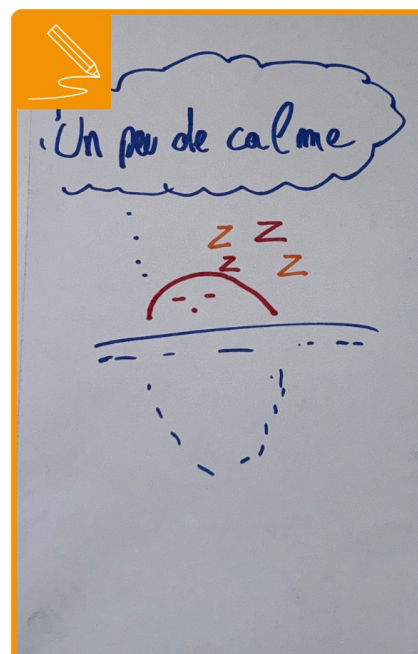 Un peu de calme
Z Z
Z Z